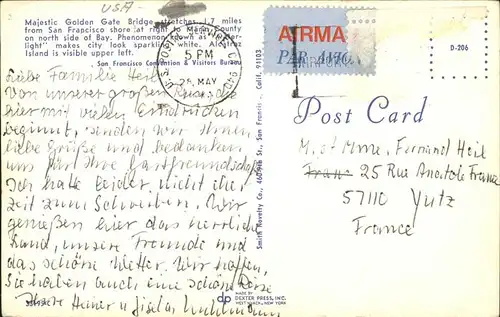 USA
Majestic Golden Gate Bridge stretches 1.7 miles
from San Francisco shore at right to Marin County
on north side of Bay. Phenomenon known as
light" makes city look sparkling white. Alcatraz
Island is visible upper left.
San Francisco Convention & Visitors Bureau
U.S. POSTAL
5 PM
25 MAY
940
AIRMA
PAR AVIO
D-206
Post Card
Liebe Familie Heil
Von unserer großen Reise, die
hier mit vielen Eindrücken
beginnt, senden wir Ihnen
liebe Grüße und bedanken
uns für Ihre Gastfreundschaft
Ich hatte leider nicht eher
Zeit zum Schreiben. Wir
genießen hier das herrliche
Land, unsere Freunde und
das schöne Wetter. Wir hoffen,
Sie haben auch eine schöne Reise
Ihre Heiner u. Gisela
M. et Mme. Fernand Heil
25 Rue Anatole France
57110 Yutz
France
Smith Novelty Co., San Francisco, Calif. 94103
dp
MADE BY
DEXTER PRESS, INC.
WEST NYACK, NEW YORK